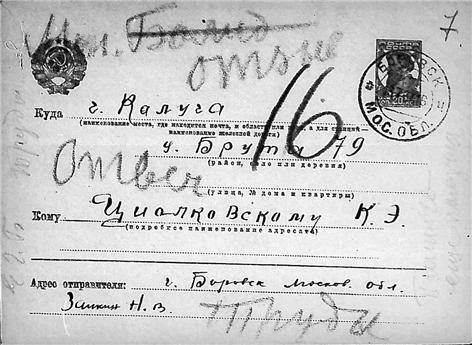 7
отзыв
БОРОВСК
МОС. ОБЛ.
Куда г. Калуга
(наименование места, где находится почта, и области или края, а для станций — наименование железной дороги)
16
у. Брута 79
(район, село или деревня)
Ответ
(улица, № дома и квартиры)
Кому Циолковскому К. Э.
(подробное наименование адресата)
Адрес отправителя: г. Боровск Москов. обл.
Зинкин Н. В.
Труды